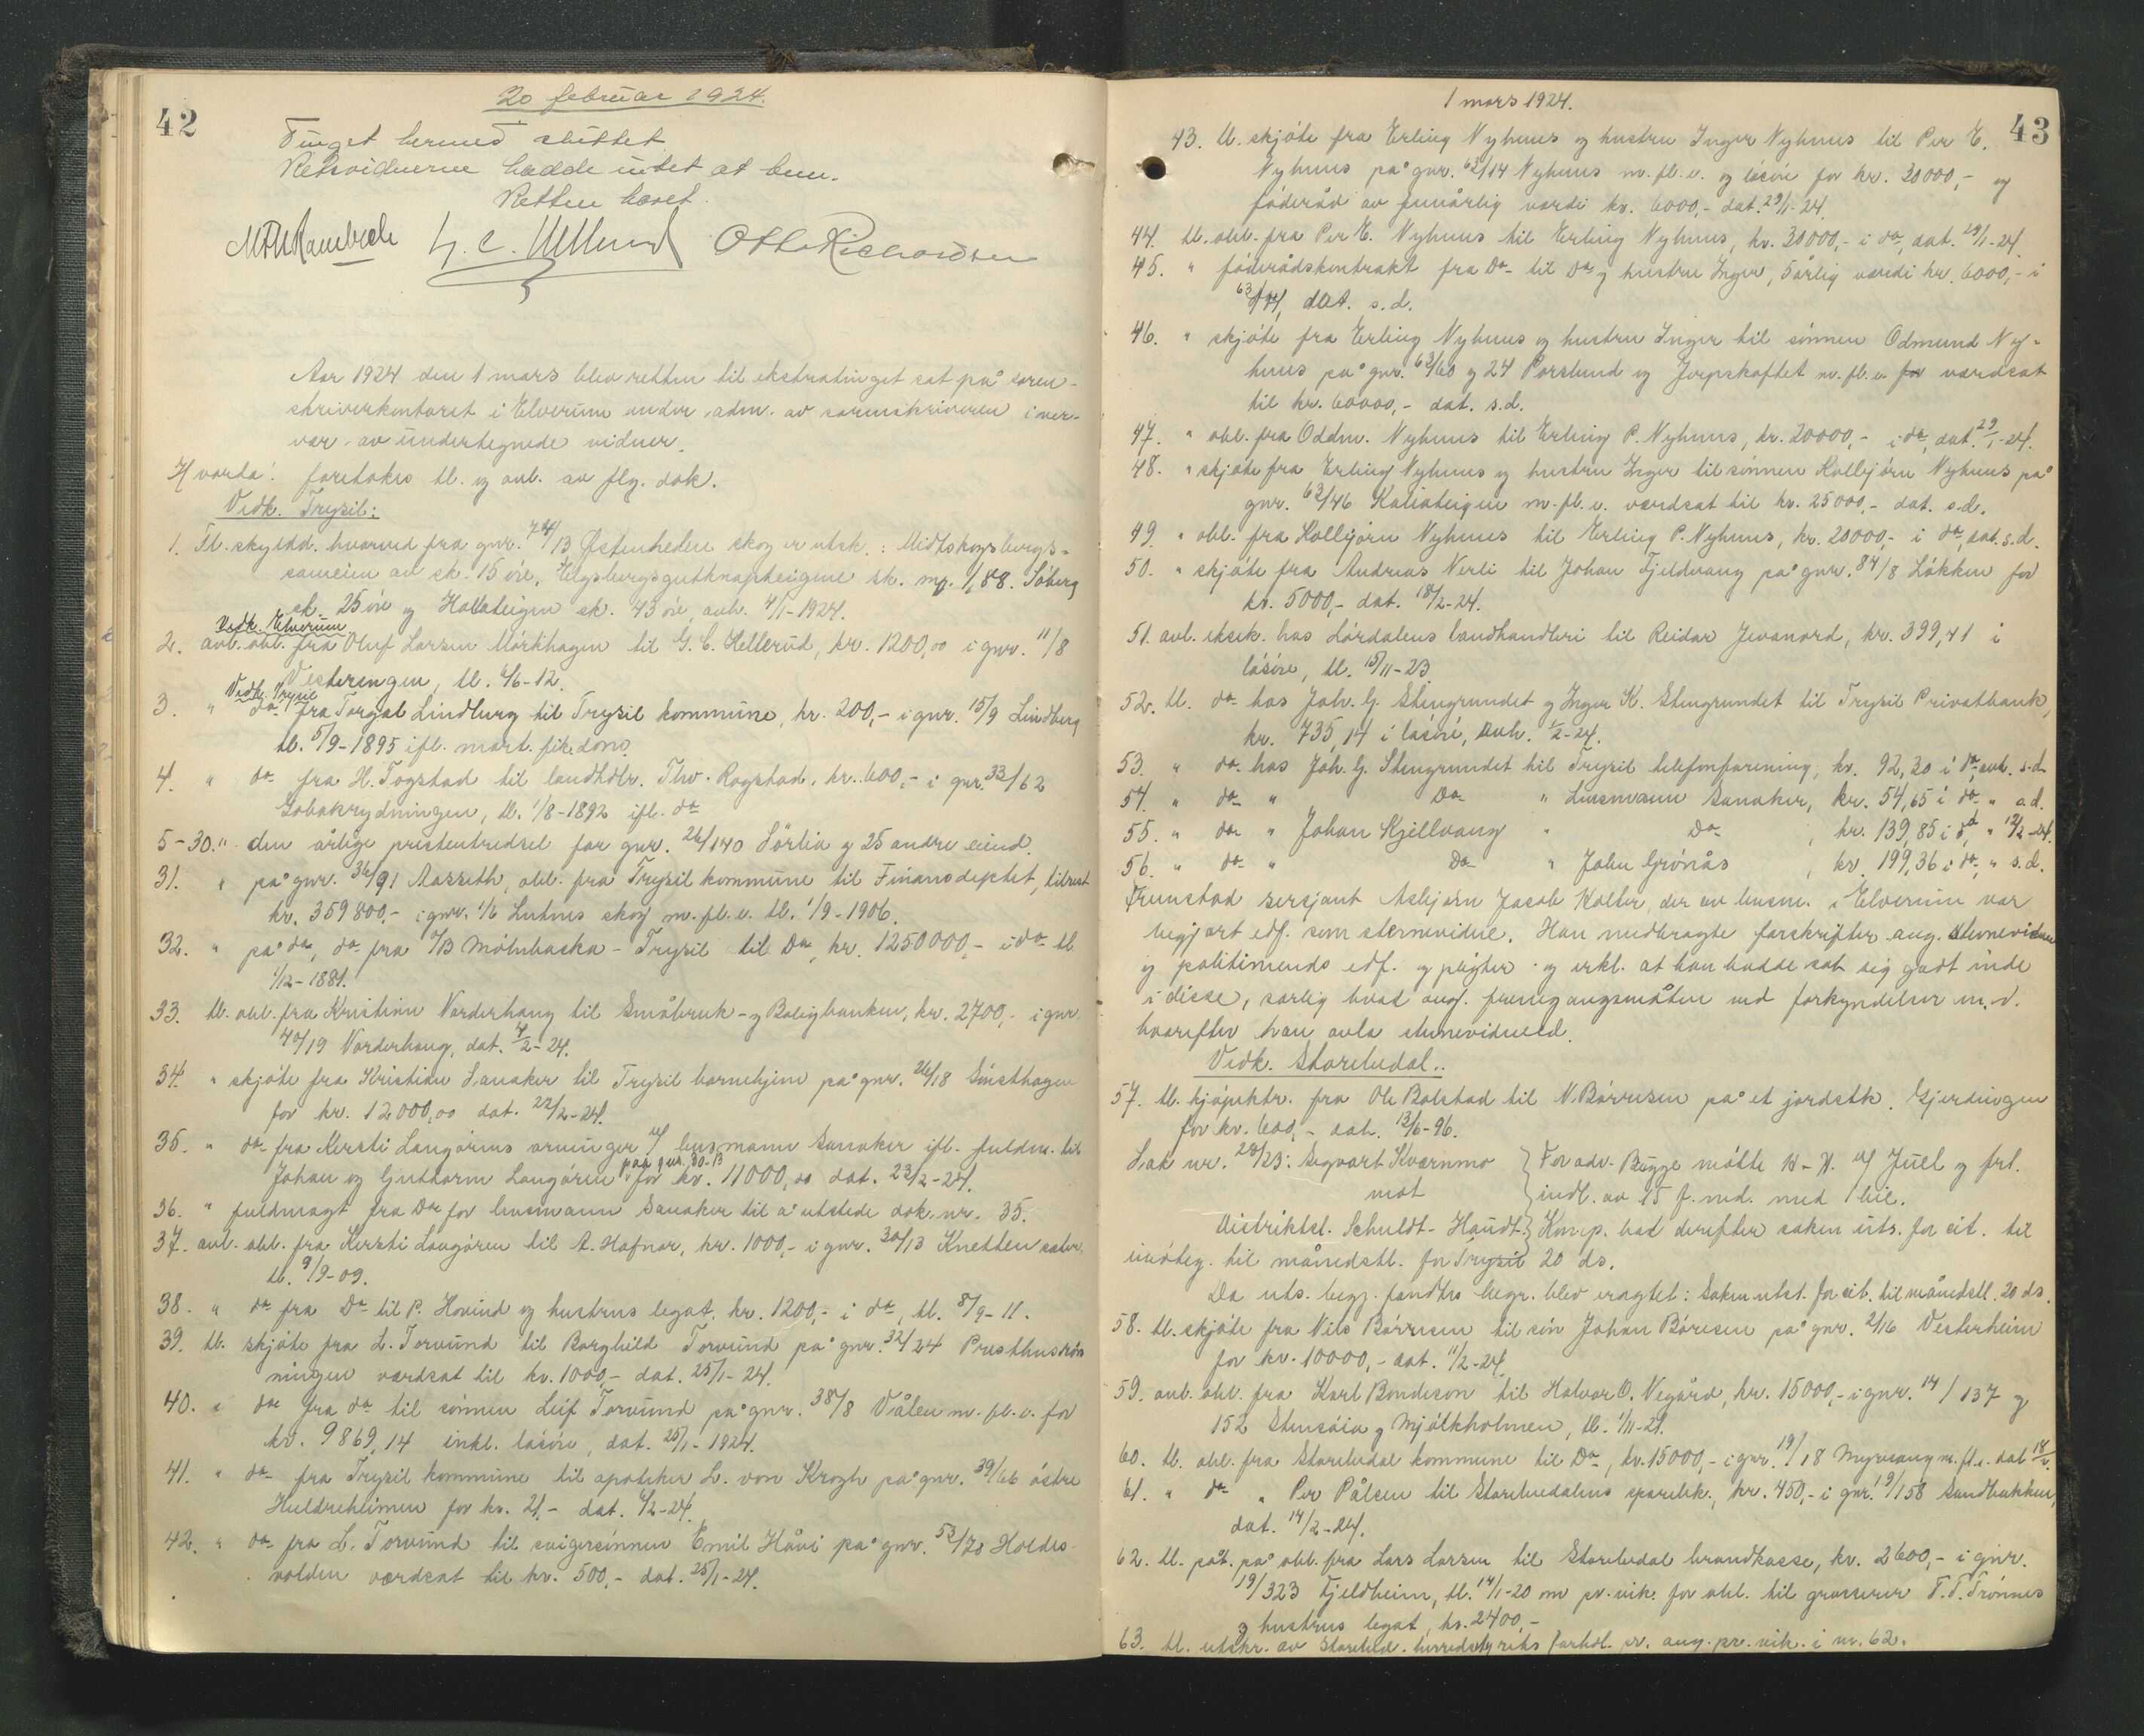 42
20 februar 1924.
Tinget hermed sluttet.
Retsvidnerne hadde intet at bem.
Retten hævet.
Otto Richardsen
Aar 1924 den 1 mars blev retten til ekstratinget sat på soren-
skriverkontoret i Elverum under adm. av sorenskriveren i over-
vær av undertegnede vidner.
Hvorda: foretokes tl. og avl. av flg. dok.
Vedk. Trysil:
1. Tl. skyldd. hvorved fra gnr. 74/13 Østenheden skog er utsk.: Midtskogsbergs-
sameien av sk. 15 øre, sk. mg. 1,88. Søberg
sk. 25 øre og Hallateigen sk. 43 øre, avh. 4/1-1924.
Vedk. Elverum
2. avl. obl. fra Oluf Larsen Mørkhagen til G. C. Hellerud, kr. 1200,00 i gnr. 11/8
Vesterengen, tl. 4/6-12.
Vedk. Trysil
3. " do fra Torgal Lindberg til Trysil kommune, kr. 200,- i gnr. 15/9 Lindberg
tl. 5/9-1895 ifl. mort. fik. dom.
4. " do fra H. Togstad til landhdlr. Thv. Rogstad, kr. 600,- i gnr. 33/62
Gobakrydningen, tl. 1/8-1892 ifl. do
5-30. " den årlige prestentredsel for gnr. 26/140 Sörlia og 25 andre eiend.
31. " på gnr. 36/91 Aasseth, obl. fra Trysil kommune til Finansdeptet, tilrest
kr. 359800,- i gnr. 1/6 Lutnes skog m. fl. e. tl. 1/9-1906.
32. " på do, do fra 7/13 Mölnbacka-Trysil til Do, kr. 1250000,- i do tl.
1/12-1881.
33. tl. obl. fra Kristine Norderhaug til Småbruk- og Boligbanken, kr. 2700,- i gnr.
40/19 Norderhaug, dat. 4/2-24.
34. " skjöte fra Kristian Sanaker til Trysil barnehjem på gnr. 26/18
for kr. 12000,00 dat. 22/2-24.
35. " do fra Kersti Langörens arvinger v/ lensmann Sanaker ifl. fuldm. til
Johan og Guttorm Langören paa gnr. 30-13 for kr. 11000,00 dat. 23/2-24.
36. " fuldmagt fra Do for lensmann Sanaker til å utstede dok. nr. 35.
37. avl. obl. fra Kersti Langören til A. Hafnor, kr. 1000,- i gnr. 30/13 Knetten sæter,
tl. 9/9-09.
38. " do fra Do til P. Hovind og hustrus legat, kr. 1200,- i do, tl. 8/9-11.
39. tl. skjöte fra L. Torvund til Borghild Torvund på gnr. 32/24
ningen værdsat til kr. 1000,- dat. 25/1-24.
40. " do fra do til sönnen Leif Torvund på gnr. 38/8 Vålen m. fl. e. for
kr. 9869,14 inkl. lösöre, dat. 25/1-1924.
41. " do fra Trysil kommune til apoteker L. von Krogh på gnr. 39/66 östre
Huldreheimen for kr. 21,- dat. 4/2-24.
42. " do fra L. Torvund til svigersönnen Emil Håvi på gnr. 53/78 Holdes-
volden værdsat til kr. 500,- dat. 25/1-24.
1 mars 1924.
43
43. tl. skjöte fra Erling Nyhuus og hustru Inger Nyhuus til Per E.
Nyhuus på gnr. 63/14 Nyhuus m. fl. e. og lösöre for kr. 30000,- og
föderåd av femårlig værdi kr. 6000,- dat. 29/1-24.
44. tl. obl. fra Per E. Nyhuus til Erling Nyhuus, kr. 30000,- i do, dat. 29/1-24.
45. " föderådskontrakt fra Do til Do og hustru Inger, 5årlig værdi kr. 6000,- i
63/14, dat. s.d.
46. " skjöte fra Erling Nyhuus og hustru Inger til sönnen Odmund Ny-
huus på gnr. 63/60 og 24 Porslund og Jerpskaftet m. fl. e. for værdsat
til kr. 60000,- dat. s.d.
47. " obl. fra Oddm. Nyhuus til Erling P. Nyhuus, kr. 20000,- i do, dat. 29/1-24.
48. " skjöte fra Erling Nyhuus og hustru Inger til sönnen Hallbjörn Nyhuus på
gnr. 63/46 m. fl. e. værdsat til kr. 25000,- dat. s.d.
49. " obl. fra Hallbjörn Nyhuus til Erling P. Nyhuus, kr. 20000,- i do, dat. s.d.
50. " skjöte fra Andreas Nerli til Johan Fjeldvang på gnr. 84/8 Lökken for
kr. 5000,- dat. 18/2-24.
51. avl. eksek. hos Lördalens landhandleri til Reidar Jevanord, kr. 399,41 i
lösöre, tl. 15/11-23.
52. tl. do hos Joh. G. Stengrundet og Inger K. Stengrundet til Trysil Privatbank,
kr. 735,14 i lösöre, avh. 1/2-24.
53. " do hos Joh. G. Stengrundet til Trysil telefonforening, kr. 92,30 i do, avh. s.d.
54. " do " Do " Lensmann Sanaker, kr. 54,65 i do, " s.d.
55. " do " Johan Kjellvang " Do, kr. 139,85 i do, " 12/2-24.
56. " do " Do " John Grönås, kr. 199,36 i do, " s.d.
Fremstod sersjant Asbjörn Jacob Kolter, der av lensm. i Elverum var
begjært edf. som stevnevidne. Han medbragte forskrifter ang. stevnevidne
og politimends edf. og pligter og erkl. at han hadde sat sig godt inde
i disse, særlig hvad ang. fremgangsmåten ved forkyndelser m. v.
hvorefter han avla stevnevidneed.
Vedk. Storelvdal..
57. tl. kjöpektr. fra Ole Bolstad til N. Börresen på et jordstk. Gjerdingen
for kr. 600,- dat. 12/6-96.
Sak nr. 28/23: Segvart Kværnmo } For adv. Bugge mötte H-R. v/ Juel og frl.
mot } indl. av 15 f. md. med 1 bil.
distriktsl. Schuldt-Haudt. } Komp. bad derefter saken uts. for eit. til
imöteg. til månedstl. for Trysil 20 ds.
Da uts. begj. fandtes begr. blev eragtet: Saken utst. for eit. til månedstl. 20 ds.
58. tl. skjöte fra Nils Börresen til sön Johan Böresen på gnr. 2/16 Vesterheim
for kr. 10000,- dat. 11/2-24.
59. avl. obl. fra Karl Bondeson til Halvor O. Negård, kr. 15000,- i gnr. 14/137 og
152 Stensöia og Mjölkholmen, tl. 1/11-21.
60. tl. obl. fra Storelvdal kommune til Do, kr. 15000,- i gnr. 19/18 Myrvang m. fl. e. dat
61. " do " Per Pålsen til Storelvedalens sparebk., kr. 450,- i gnr. 19/158 Sandbakken,
dat. 14/2-24.
62. tl. påt. på obl. fra Lars Larsen til Storelvdal brandkasse, kr. 2600,- i gnr.
19/323 Fjeldheim, tl. 14/1-20 om pr. vik. for obl. til grosserer T. T. Trönnes
og hustrus legat, kr. 2400,-
63. tl. utskr. av Storelvd. herredstyrets forhdl. pr. ang. pr. vik. i nr. 62.